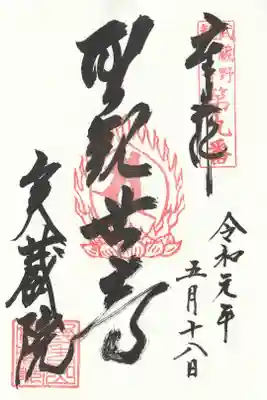 奉拝
武蔵野第九番
令和元年
五月十八日
聖観世音
実蔵院